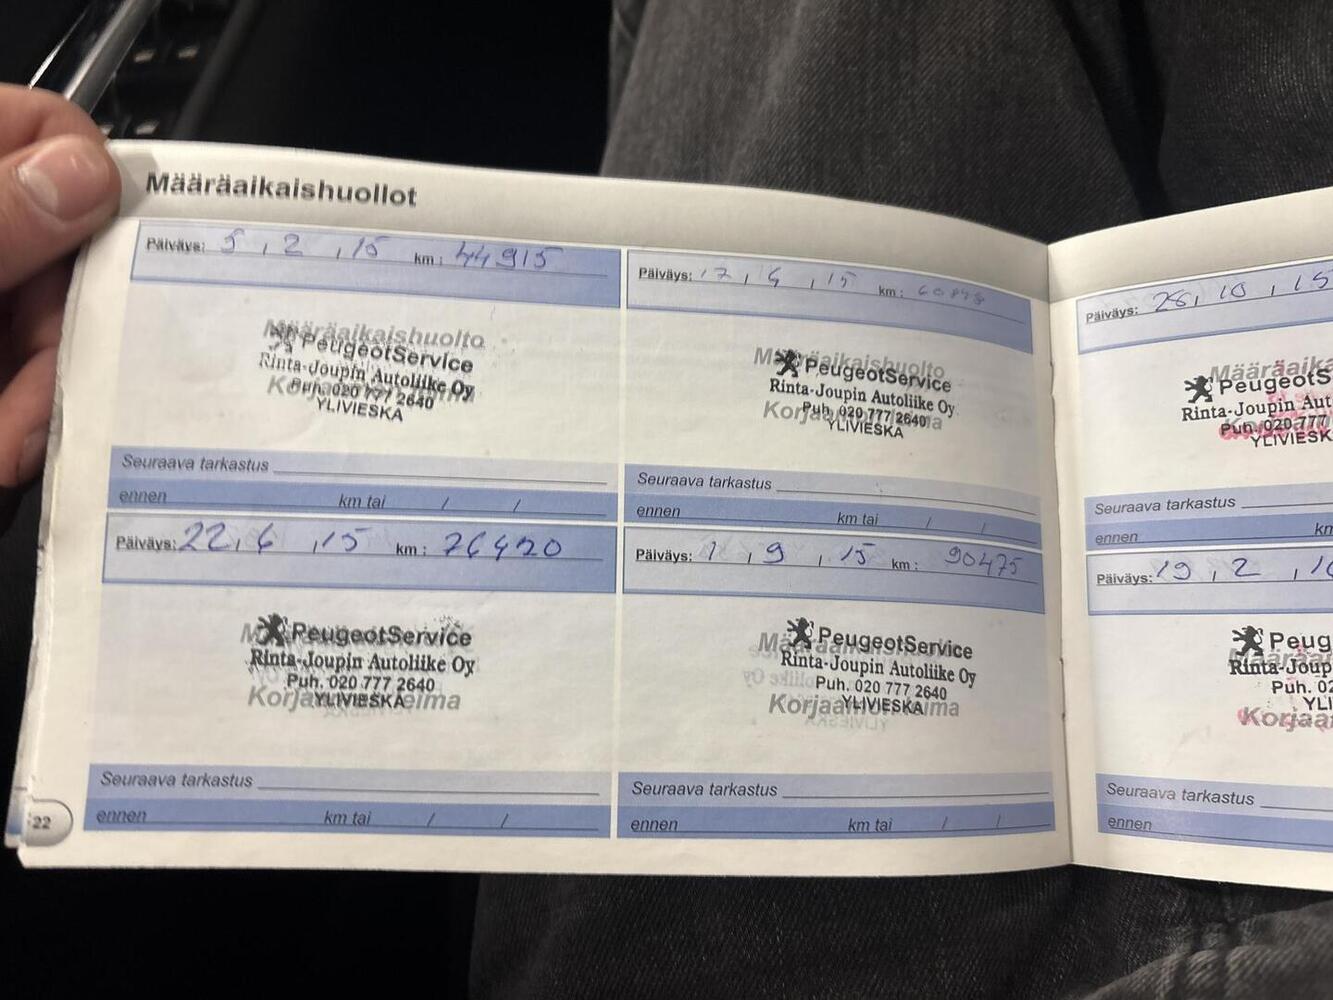 Määräaikaishuollot
Päiväys: 5 , 2 , 15 km : 44915
Määräaikaishuolto
PeugeotService
Rinta-Joupin Autoliike Oy
Puh. 020 777 2640
YLIVIESKA
Seuraava tarkastus
ennen km tai / /
Päiväys: 17 , 4 , 15 km :
Määräaikaishuolto
PeugeotService
Rinta-Joupin Autoliike Oy
Puh. 020 777 2640
YLIVIESKA
Seuraava tarkastus
ennen km tai / /
Päiväys: 22 , 6 , 15 km : 76420
PeugeotService
Rinta-Joupin Autoliike Oy
Puh. 020 777 2640
YLIVIESKA
Seuraava tarkastus
ennen km tai / /
Päiväys: 1 , 9 , 15 km : 90475
PeugeotService
Rinta-Joupin Autoliike Oy
Puh. 020 777 2640
YLIVIESKA
Seuraava tarkastus
ennen km tai / /
22
Päiväys: 26 , 10 , 15
Määräaika
PeugeotS
Rinta-Joupin Aut
Puh. 020 777
YLIVIESK
Seuraava tarkastus
ennen km
Päiväys: 19 , 2 , 16
Peug
Rinta-Joup
Puh. 02
YLI
Korjaa
Seuraava tarkastus
ennen